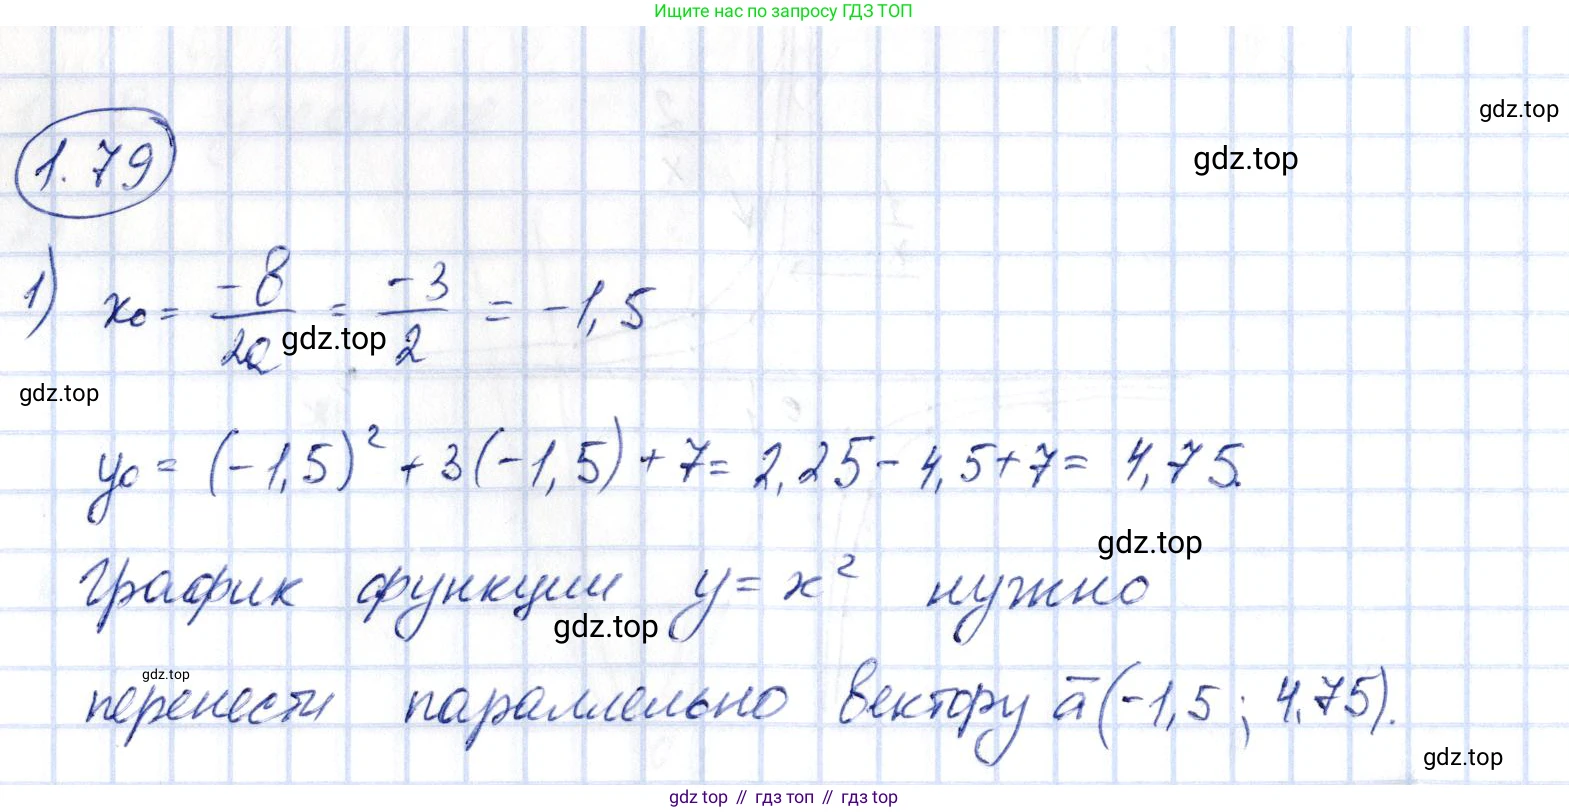 Ищите нас по запросу ГДЗ ТОП
gdz.top
1.79
gdz.top
1) x₀ = -в/2a = -3/2 = -1,5
gdz.top
gdz.top
y₀ = (-1,5)² + 3(-1,5) + 7 = 2,25 - 4,5 + 7 = 4,75.
gdz.top
График функции y = x² нужно
gdz.top
gdz.top
перенести параллельно вектору a̅ (-1,5 ; 4,75).
gdz.top
gdz top // гдз топ // gdz top